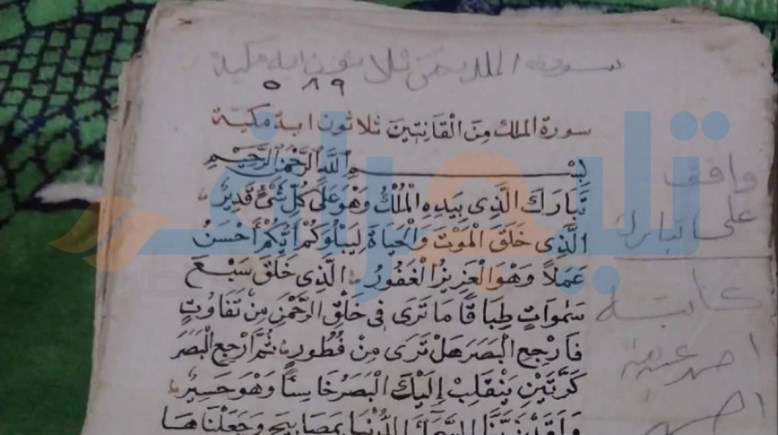 سورة الملك ثلاثون اية مكية
٥٨٩
سورة الملك من القانتين ثلاثون اية مكية
بِسْمِ اللَّهِ الرَّحْمَنِ الرَّحِيمِ
تَبَارَكَ الَّذِي بِيَدِهِ الْمُلْكُ وَهُوَ عَلَى كُلِّ شَيْءٍ قَدِيرٌ
الَّذِي خَلَقَ الْمَوْتَ وَالْحَيَاةَ لِيَبْلُوَكُمْ أَيُّكُمْ أَحْسَنُ
عَمَلًا وَهُوَ الْعَزِيزُ الْغَفُورُ الَّذِي خَلَقَ سَبْعَ
سَمَوَاتٍ طِبَاقًا مَا تَرَى فِي خَلْقِ الرَّحْمَنِ مِنْ تَفَاوُتٍ
فَارْجِعِ الْبَصَرَ هَلْ تَرَى مِنْ فُطُورٍ ثُمَّ ارْجِعِ الْبَصَرَ
كَرَّتَيْنِ يَنْقَلِبْ إِلَيْكَ الْبَصَرُ خَاسِئًا وَهُوَ حَسِيرٌ
وَلَقَدْ زَيَّنَّا السَّمَاءَ الدُّنْيَا بِمَصَابِيحَ وَجَعَلْنَاهَا
واقف
على تبارك
كاتبه
احمد
تليجراف